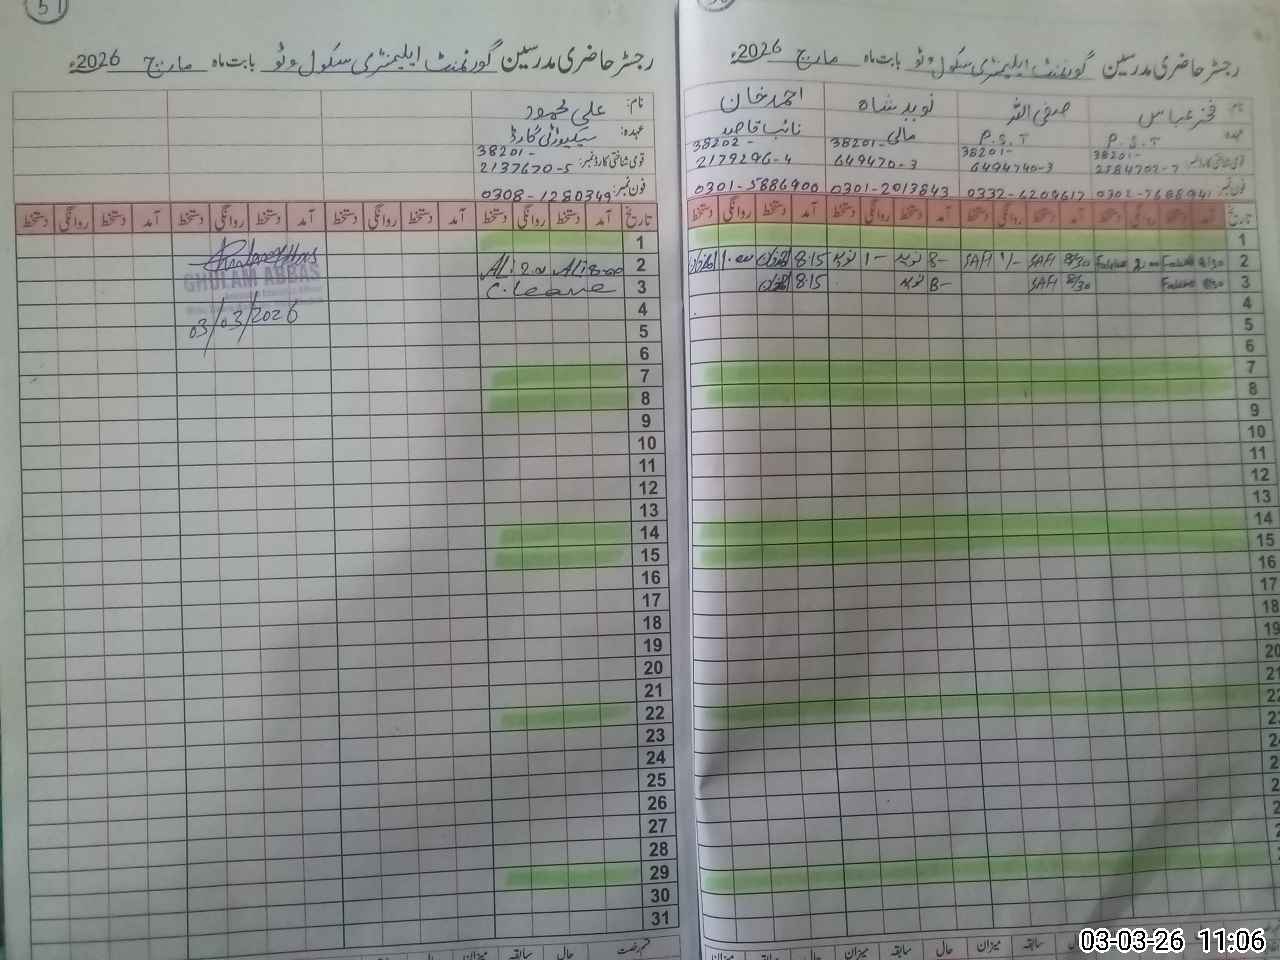 51
رجسٹر حاضری مدرسین گورنمنٹ ایلیمنٹری سکول وٹو بابت ماہ مارچ 2026ء
نام: علی محمود
عہدہ: سیکیورٹی گارڈ
قومی شناختی کارڈ نمبر: 38201-2137670-5
فون نمبر: 0308-1280349
تاریخ آمد دستخط روانگی دستخط آمد دستخط روانگی دستخط آمد دستخط روانگی دستخط آمد دستخط روانگی دستخط
1
2 Ali
3 C.leave
GHULAM ABBAS
03/03/2026
4
5
6
7
8
9
10
11
12
13
14
15
16
17
18
19
20
21
22
23
24
25
26
27
28
29
30
31
قسم رخصت حال سابقہ میزان
رجسٹر حاضری مدرسین گورنمنٹ ایلیمنٹری سکول وٹو بابت ماہ مارچ 2026ء
نام فخر عباس صفی اللہ نوید شاہ احمد خان
عہدہ P.S.T P.S.T مالی نائب قاصد
قومی شناختی کارڈ نمبر: 38201-2584702-7 38201-6494740-3 38201-649470-3 38202-2179296-4
فون نمبر: 0332-6209617 0301-2013843 0301-5886900
تاریخ آمد دستخط روانگی دستخط آمد دستخط روانگی دستخط آمد دستخط روانگی دستخط آمد دستخط روانگی دستخط
1
2 8/30 SAFI 1/- SAFI 8- نوید 1- نوید 8:15
3 8/30 SAFI 8- نوید 8:15
4
5
6
7
8
9
10
11
12
13
14
15
16
17
18
19
20
21
22
حال سابقہ میزان حال سابقہ میزان
03-03-26 11:06